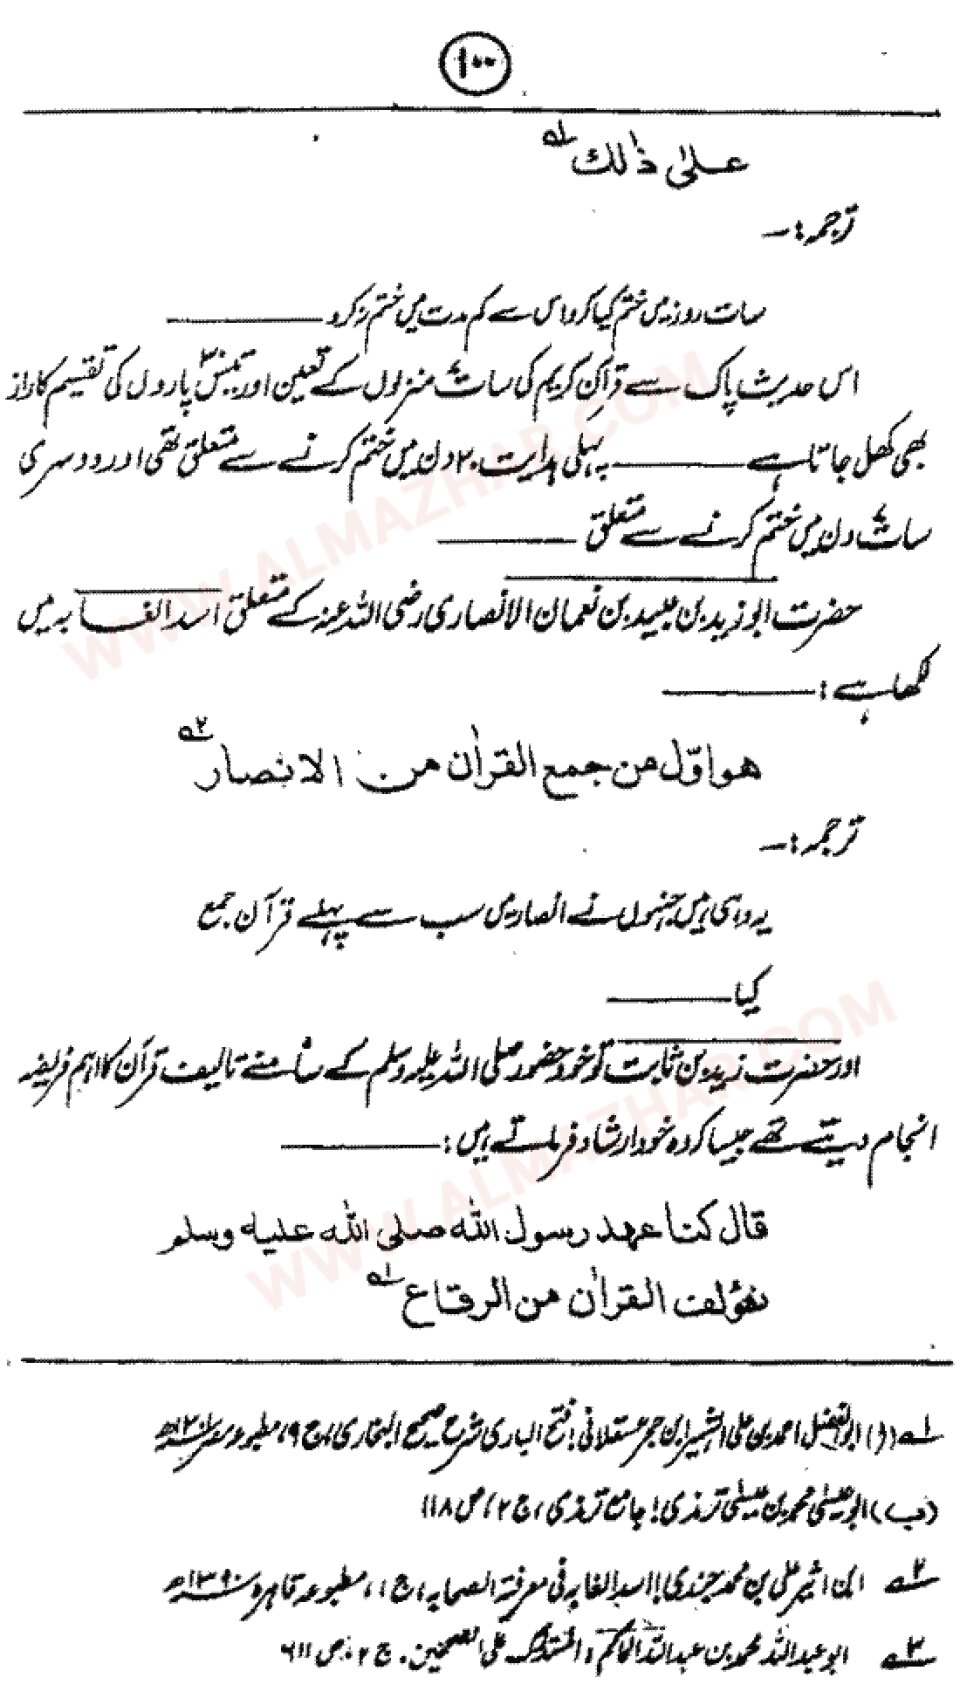 ۱۰۰
علیٰ ذالك ؎۱
ترجمہ :۔
سات روز میں ختم کیا کرو اس سے کم مدت میں ختم نہ کرو ــــــــ
اس حدیث پاک سے قرآن کریم کی سات ۷ منزلوں کے تعین اور تیس ۳۰ پاروں کی تقسیم کا راز
بھی کھل جاتا ہے ــــــــ یہ پہلی ہدایت ۲۰ دن میں ختم کرنے سے متعلق تھی اور دوسری
سات ۷ دن میں ختم کرنے سے متعلق ــــــــ
حضرت ابو زید بن عبید بن نعمان الانصاری رضی اللہ عنہ کے متعلق اسد الغابہ میں
لکھا ہے : ــــــــ
هو اوّل من جمع القراٰن من الانصار ؎۲
ترجمہ :۔
یہ وہی ہیں جنہوں نے انصار میں سب سے پہلے قرآن جمع
کیا ــــــــ
اور حضرت زید بن ثابت تو خود حضور صلی اللہ علیہ وسلم کے سامنے تالیف قرآن کا اہم فریضہ
انجام دیتے تھے جیسا کہ وہ خود ارشاد فرماتے ہیں : ــــــــ
قال كنا عهد رسول الله صلى الله عليه وسلم
نؤلف القراٰن من الرقاع ؎۱
؎۱ (ا) ابوالفضل احمد بن علی الشہیر ابن حجر عسقلانی : فتح الباری شرح صحیح البخاری، ج ۹، مطبوعہ مصر ۱۳۰۱ھ
(ب) ابو عیسیٰ محمد بن عیسیٰ ترمذی : جامع ترمذی، ج ۲، ص ۱۱۸
؎۲ ابن اثیر علی بن محمد جزری : اسد الغابہ فی معرفۃ الصحابہ، ج ۱، مطبوعہ قاہرہ ۱۳۹۰ھ
؎۳ ابو عبداللہ محمد بن عبداللہ الحاکم : المستدرک علی الصحیحین، ج ۲، ص ۶۱۱
WWW.ALMAZHAR.COM
WWW.ALMAZHAR.COM